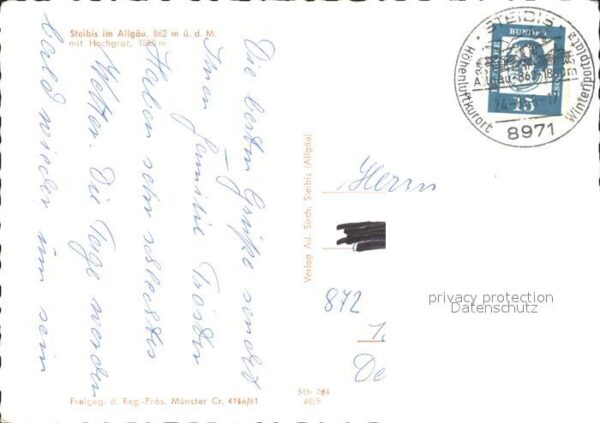 Steibis im Allgäu, 862 m ü. d. M.
mit Hochgrat,
Die besten Grüße sendet
Ihnen Familie
Haben sehr schlechtes
Wetter. Die Tage werden
bald wieder um sein
Freigeg. d. Reg.-Präs. Münster Cr. 4156/61
Verlag Ad. Sirch, Steibis (Allgäu)
Stb 084
STEIBIS
8971
Höhenluftkurort
Wintersportplatz
15
Herrn
872
De
privacy protection
Datenschutz